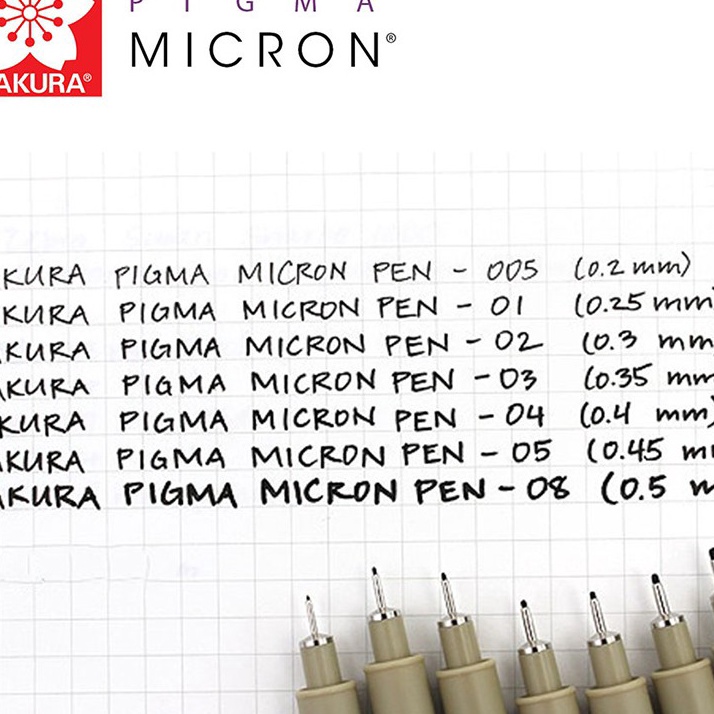 PIGMA
MICRON®
AKURA®
KURA PIGMA MICRON PEN - 005 (0.2 mm)
KURA PIGMA MICRON PEN - 01 (0.25 mm
KURA PIGMA MICRON PEN - 02 (0.3 mm
KURA PIGMA MICRON PEN - 03 (0.35 mm
KURA PIGMA MICRON PEN - 04 (0.4 mm)
KURA PIGMA MICRON PEN - 05 (0.45 m
KURA PIGMA MICRON PEN - 08 (0.5 m